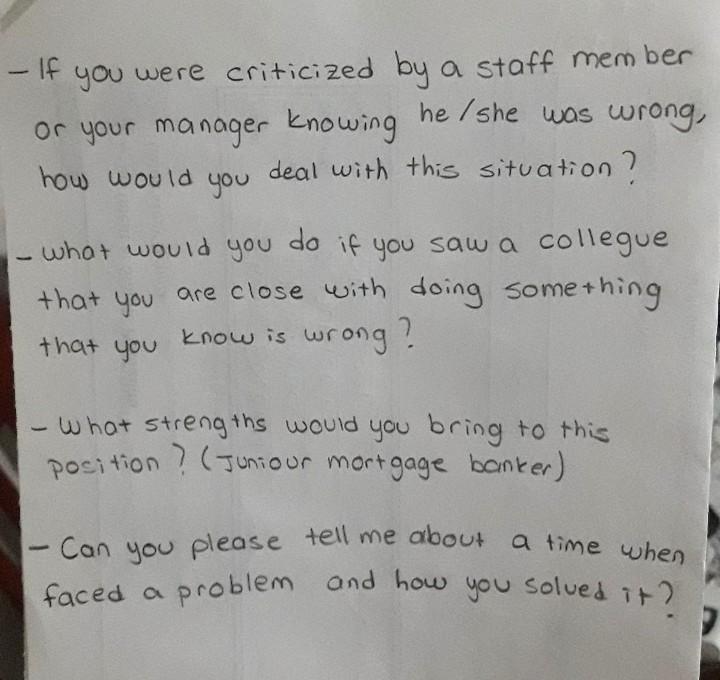 - If you were criticized by a staff member
or your manager knowing he/she was wrong,
how would you deal with this situation?
- what would you do if you saw a collegue
that you are close with doing something
that you know is wrong?
- What strengths would you bring to this
position? (Juniour mortgage banker)
- Can you please tell me about a time when
faced a problem and how you solved it?